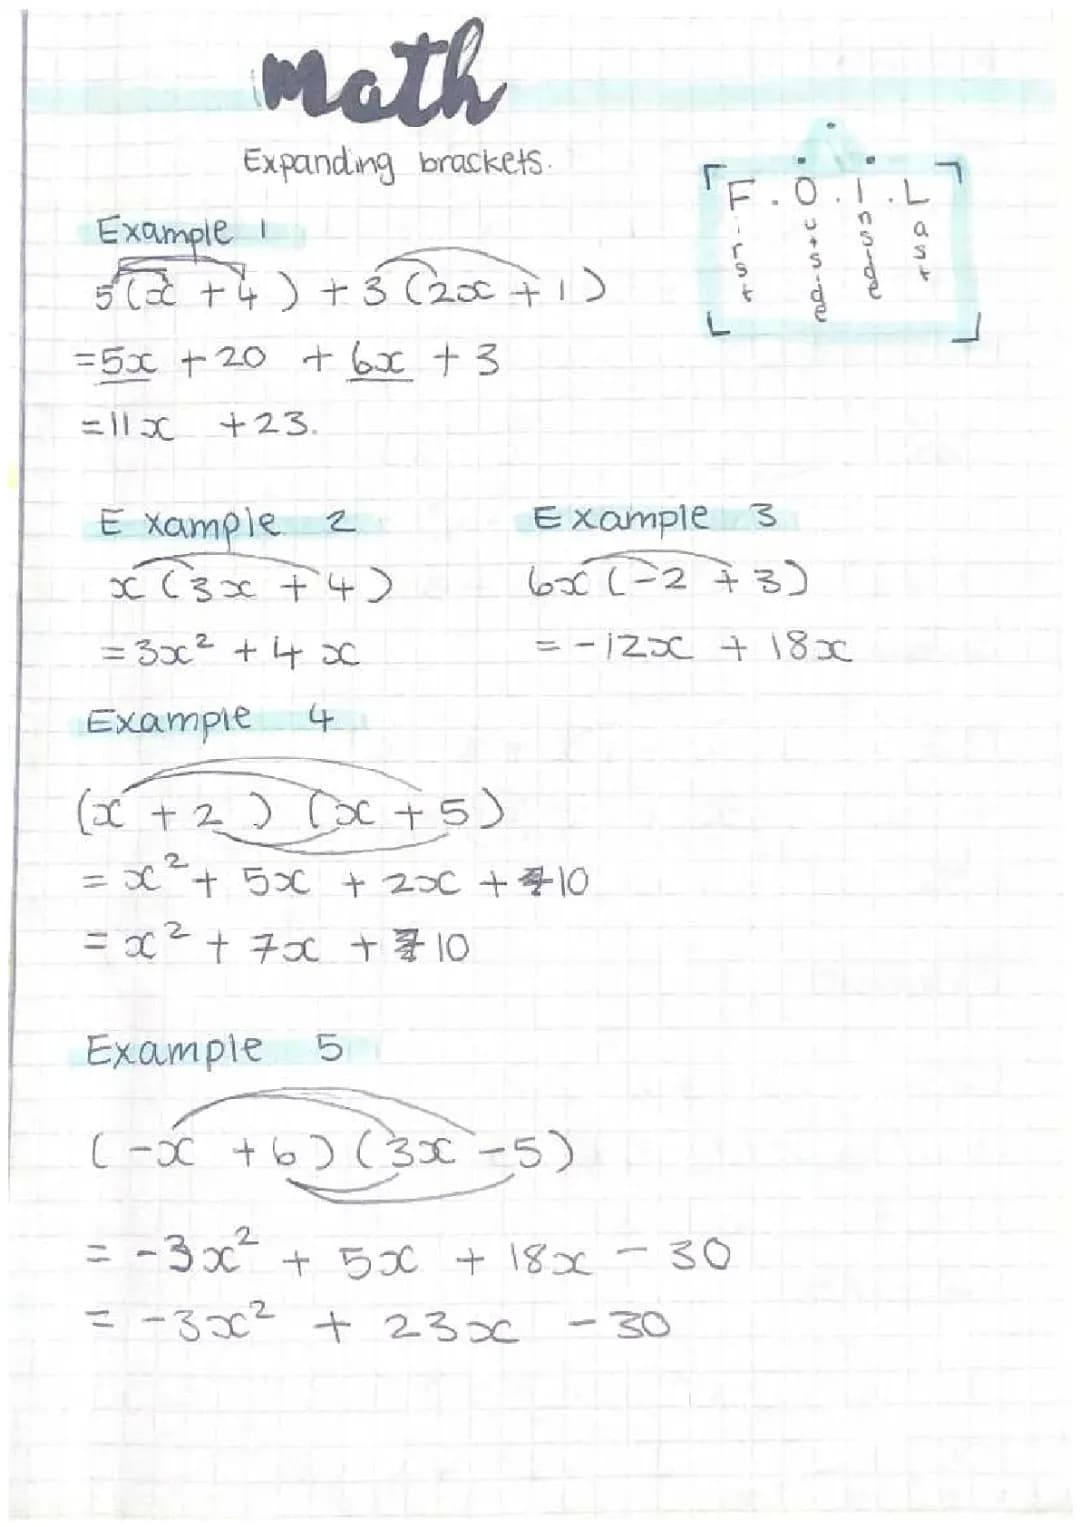 Math
Expanding brackets.
F.O.I.L
First
Outside
Inside
Last
Example 1
5(x + 4) + 3(2x + 1)
=5x + 20 + 6x + 3
=11x +23.
Example 2
x(3x + 4)
=3x² + 4x
Example 3
6x(-2 + 3)
= -12x + 18x
Example 4
(x + 2)(x + 5)
= x² + 5x + 2x + 10
= x² + 7x + 10
Example 5
(-x + 6)(3x - 5)
= -3x² + 5x + 18x - 30
= -3x² + 23x - 30